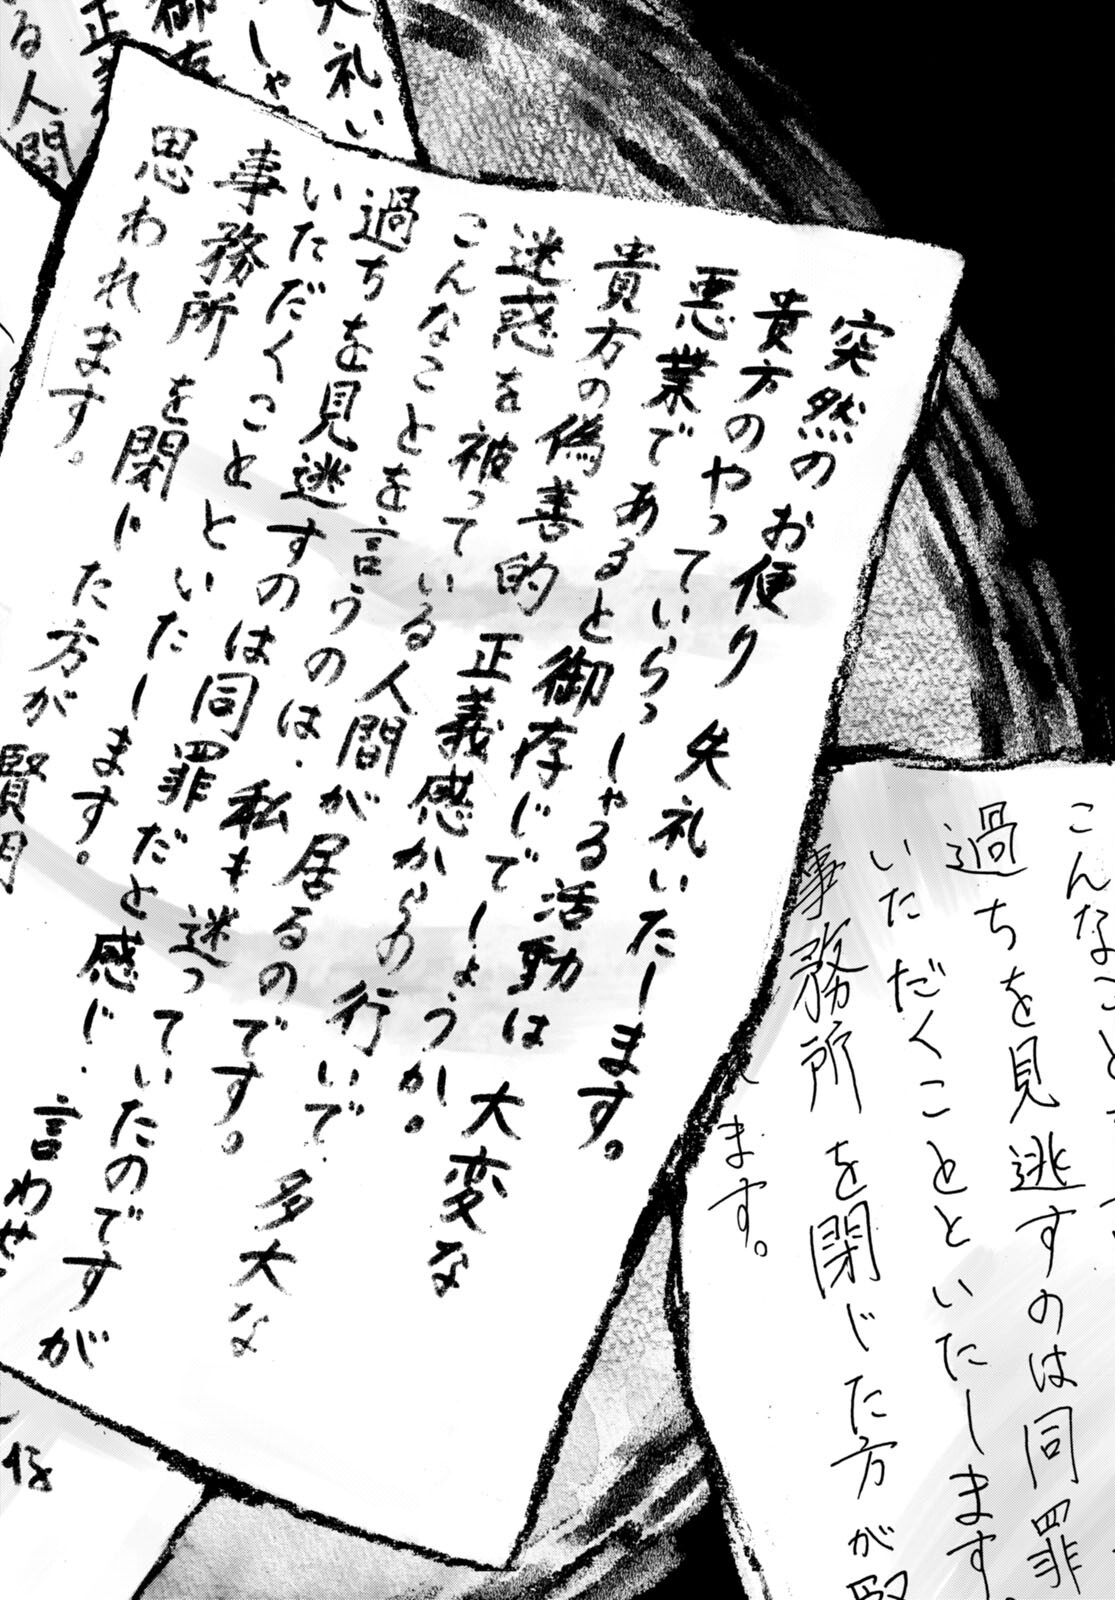 突然のお便り失礼いたします。
貴方のやっていらっしゃる活動は大変な
悪業であると御存じでしょうか。
貴方の偽善的正義感からの行いで、多大な
迷惑を被っている人間が居るのです。
こんなことを言うのは、私も迷っていたのですが
過ちを見逃すのは同罪だと感じ、言わせ
いただくことといたします。
事務所を閉じた方が賢明
思われます。
こんなこと
過ちを見逃すのは同罪
いただくことといたします。
事務所を閉じた方が賢
ます。
礼い
しゃ
御存
正義
る人間